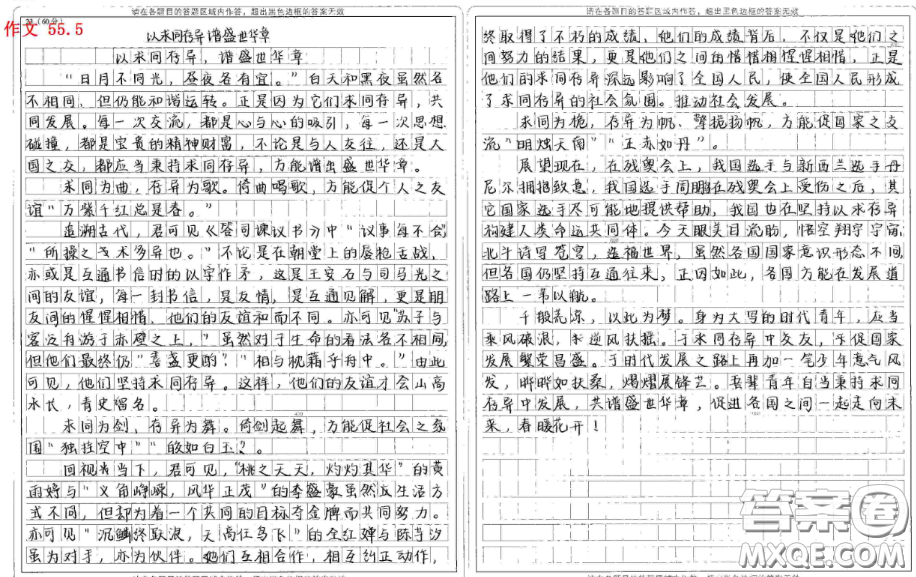 请在各题目的答题区域内作答，超出黑色边框的答案无效
作文 55.5
23 (60分)
以求同存异谐盛世华章
以求同存异，谐盛世华章
“日月不同光，昼夜各有宜。”白天和黑夜虽然各
不相同，但仍能和谐运转。正是因为它们求同存异，共
同发展。每一次交流，都是心与心的吸引，每一次思想
碰撞，都是宝贵的精神财富，不论是与人友往，还是大
国之交，都应当秉持求同存异，方能谱出盛世华章。
求同为曲，存异为歌。倚曲唱歌，方能促个人之友
谊“万紫千红总是春。”
追溯古代，君可见《答司谏议书》方“议事每不合”
“所操之术多异也。”不论是在朝堂上的唇枪舌战，
亦或是互通书信时的以字作矛，这是王安石与司马光之
间的友谊，每一封书信，是友情，是互通见解，更是朋
友间的惺惺相惜，他们的友谊和而不同。亦可见“苏子与
客泛舟游于赤壁之上，”虽然对于生命的看法各不相同，
但他们最终仍“喜盏更酌？”“相与枕藉乎舟中。”由此
可见，他们坚持求同存异。这样，他们的友谊才会山高
水长，青史留名。
求同为剑，存异为舞。倚剑起舞，方能促社会之氛
围“独挂空中”“敢如白玉？”
回视当下，君可见，“桃之夭夭，灼灼其华”的黄
雨婷与“义角峥嵘，风华正茂”的李盛豪虽然生活方
式不同，但却为着一个共同的目标夺金牌而共同努力。
亦可见“沉鳞终跃浪，天高任鸟飞”的全红婵与陈芋汐
虽为对手，亦为伙伴。她们互相合作，相互纠正动作，
请在各题目的答题区域内作答，超出黑色边框的答案无效
终取得了不朽的成绩，他们的成绩背后，不仅是他们之
间努力的结果，更是他们之间的惜惜相惺惺相惜，正是
他们的求同存异深远影响了全国人民，使全国人民形成
了求同存异的社会氛围。推动社会发展。
求同为桅，存异为帆、擎桅扬帆，方能促国家之交
流“明烛天南”“正赤如丹”。
展望现在，在残奥会上，我国选手与新西兰选手丹
尼尔拥抱致意，我国选手周鹏在残奥会上受伤之后，其
它国家选手尽可能地提供帮助，我国也在坚持以求存异
构建人类命运共同体。今天眼美目流盼，悟空翔宇宇宙，
北斗诗写苍穹，造福世界，虽然各国国家意识形态不同，
但各国仍坚持互通往来，正因如此，各国方能在发展道
路上一苇以航。
千般荒凉，以此为梦。身为大写的时代青年，应当
乘风破浪，逆风扶摇。于求同存异中交友，促国家
发展繁荣昌盛。于时代发展之路上再加一笔少年意气风
发，晔晔如扶桑，熠熠展锋芒。吾辈青年自当秉持求同
存异中发展，共谐盛世华章，促进各国之间一起走向未
来，春暖花开！
答案圈
MXQE.COM